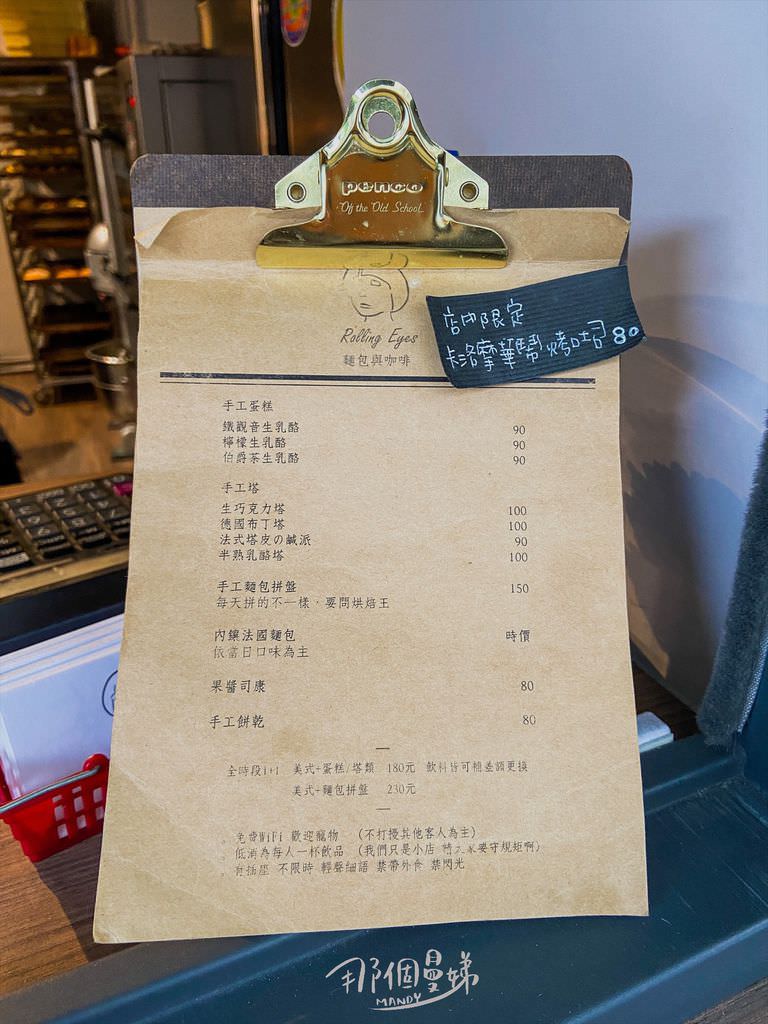 penco
Off the Old School
Rolling Eyes
麵包與咖啡
店內限定
卡洛摩華鬨 烤吐司 80
手工蛋糕
鐵觀音生乳酪 90
檸檬生乳酪 90
伯爵茶生乳酪 90
手工塔
生巧克力塔 100
德國布丁塔 100
法式塔皮の鹹派 90
半熟乳酪塔 100
手工麵包拼盤 150
每天拼的不一樣,要問烘焙王
內鑲法國麵包 時價
依當日口味為主
果醬司康 80
手工餅乾 80
全時段1+1 美式+蛋糕/塔類 180元 飲料皆可補差額更換
美式+麵包拼盤 230元
免費WiFi 歡迎寵物 (不打擾其他客人為主)
低消為每人一杯飲品 (我們只是小店 請大家要守規矩啊)
有插座 不限時 輕聲細語 禁帶外食 禁閃光
那個曼娣
MANDY